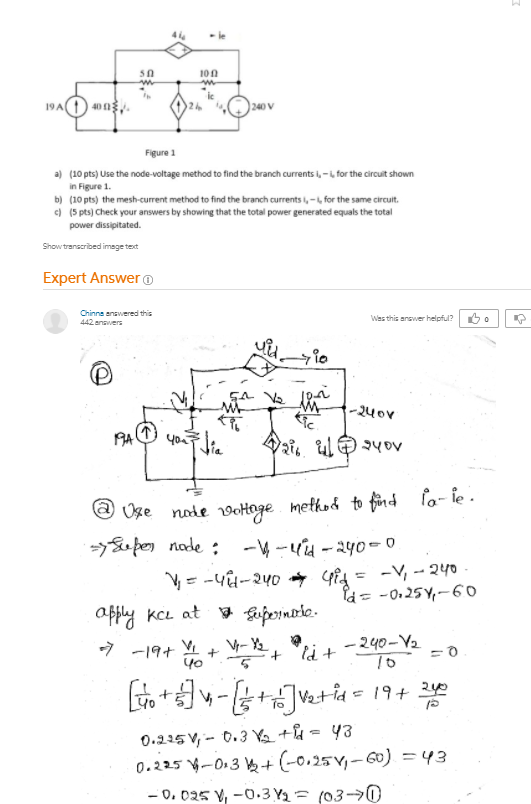 4 i_d
- i_e
5 Ω
10 Ω
i_b
i_c
19 A
40 Ω
2 i_b
240 V
Figure 1
a) (10 pts) Use the node-voltage method to find the branch currents for the circuit shown
in Figure 1.
b) (10 pts) the mesh-current method to find the branch currents for the same circuit.
c) (5 pts) Check your answers by showing that the total power generated equals the total
power dissipitated.
Show transcribed image text
Expert Answer
Chinna answered this
442 answers
Was this answer helpful?
0
4i_d → i_e
P
V_1 5Ω V_2 10Ω
i_b i_c -240V
19A 40Ω i_a 2i_b i_d 240V
ⓐ Use node voltage method to find i_a - i_e.
⇒ Super node : -V_1 - 4i_d - 240 = 0
V_1 = -4i_d - 240 ⇒ 4i_d = -V_1 - 240.
i_d = -0.25V_1 - 60
apply KCL at supernode.
⇒ -19 + V_1/40 + (V_1 - V_2)/5 + i_d + (-240 - V_2)/10 = 0
[1/40 + 1/5] V_1 - [1/5 + 1/10] V_2 + i_d = 19 + 240/10
0.225V_1 - 0.3V_2 + i_d = 43
0.225V_1 - 0.3V_2 + (-0.25V_1 - 60) = 43
-0.025V_1 - 0.3V_2 = 103 → ①